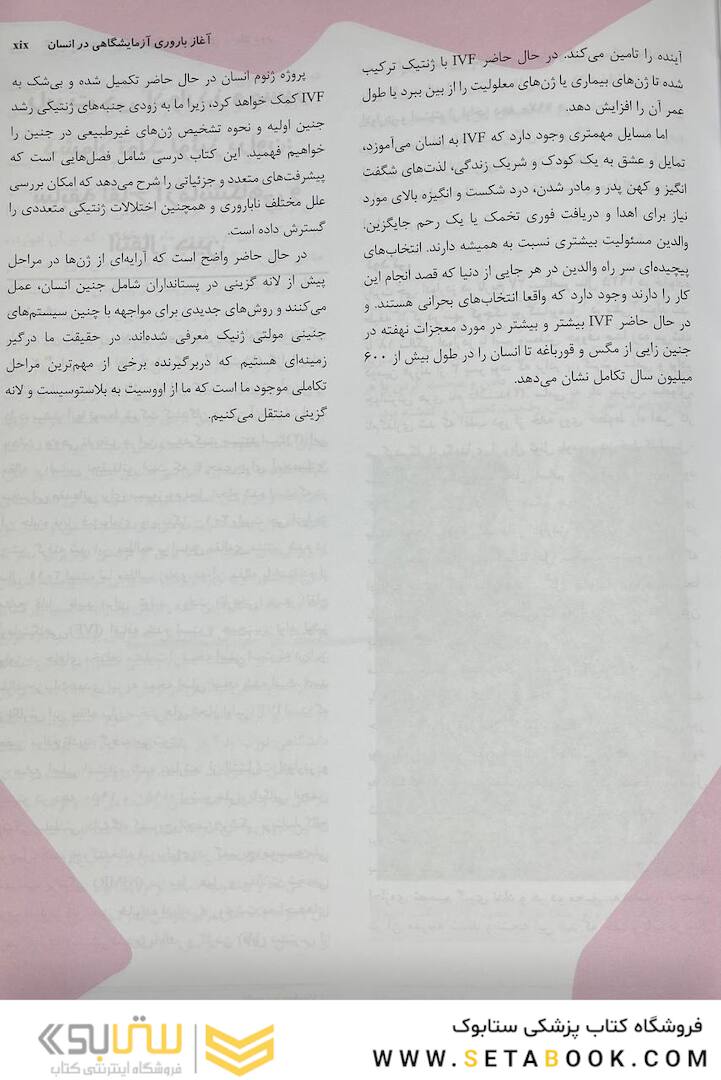 آغاز باروری آزمایشگاهی در انسان xix
آینده را تامین می‌کند. در حال حاضر IVF با ژنتیک ترکیب
شده تا ژن‌های بیماری یا ژن‌های معلولیت را از بین ببرد یا طول
عمر آن را افزایش دهد.
اما مسایل مهمتری وجود دارد که IVF به انسان می‌آموزد،
تمایل و عشق به یک کودک و شریک زندگی، لذت‌های شگفت
انگیز و کهن پدر و مادر شدن، درد شکست و انگیزه بالای مورد
نیاز برای اهدا و دریافت فوری تخمک یا یک رحم جایگزین.
والدین مسئولیت بیشتری نسبت به همیشه دارند. انتخاب‌های
پیچیده‌ای سر راه والدین در هر جایی از دنیا که قصد انجام این
کار را دارند وجود دارد که واقعا انتخاب‌های بحرانی هستند. و
در حال حاضر IVF بیشتر و بیشتر در مورد معجزات نهفته در
جنین زایی از مگس و قورباغه تا انسان را در طول بیش از ۶۰۰
میلیون سال تکامل نشان می‌دهد.
پروژه ژنوم انسان در حال حاضر تکمیل شده و بی‌شک به
IVF کمک خواهد کرد، زیرا ما به زودی جنبه‌های ژنتیکی رشد
جنین اولیه و نحوه تشخیص ژن‌های غیرطبیعی در جنین را
خواهیم فهمید. این کتاب درسی شامل فصل‌هایی است که
پیشرفت‌های متعدد و جزئیاتی را شرح می‌دهد که امکان بررسی
علل مختلف ناباروری و همچنین اختلالات ژنتیکی متعددی را
گسترش داده است.
در حال حاضر واضح است که آرایه‌ای از ژن‌ها در مراحل
پیش از لانه گزینی در پستانداران شامل جنین انسان، عمل
می‌کنند و روش‌های جدیدی برای مواجهه با چنین سیستم‌های
جنینی مولتی ژنیک معرفی شده‌اند. در حقیقت ما درگیر
زمینه‌ای هستیم که دربرگیرنده برخی از مهم‌ترین مراحل
تکاملی موجود ما است که ما از اووسیت به بلاستوسیست و لانه
گزینی منتقل می‌کنیم.
فروشگاه کتاب پزشکی ستابوک
WWW.SETABOOK.COM
ستابوک
فروشگاه اینترنتی کتاب